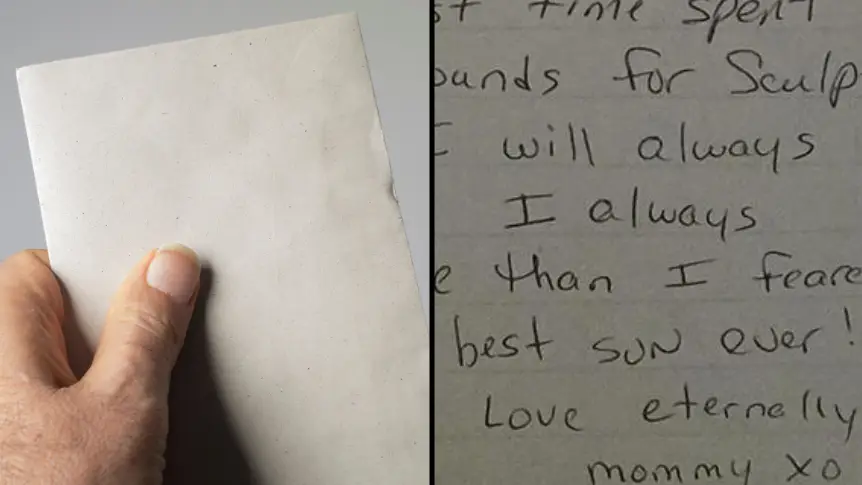 st time spent
ounds for Sculp
I will always
I always
e than I feare
best SUN ever!
Love eternally
mommy xo